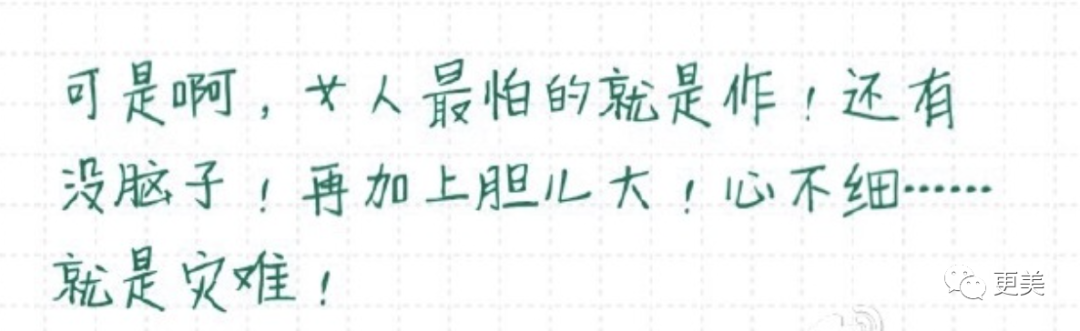 可是啊，女人最怕的就是作！还有
没脑子！再加上胆儿大！心不细……
就是灾难！
更美